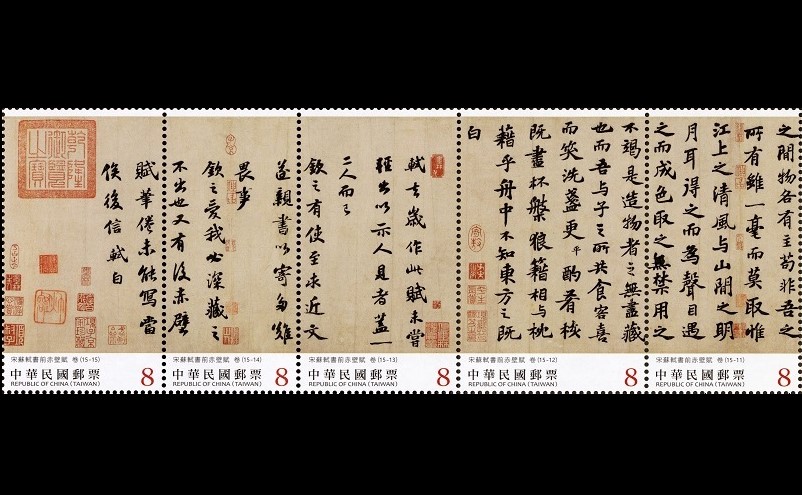 之間物各有主苟非吾之
所有雖一毫而莫取惟
江上之清風與山間之明
月耳得之而為聲目遇
之而成色取之無禁用之
不竭是造物者之無盡藏
也而吾與子之所共食客喜
而笑洗盞更平酌肴核
既盡杯槃狼籍相與枕
藉乎舟中不知東方之既
白
軾去歲作此賦未嘗
輕出以示人見者蓋一
二人而已
欽之有使至求近文
遂親書以寄多難
畏事
欽之愛我必深藏之
不出也又有後赤壁
賦筆倦未能寫當
俟後信軾白
乾隆御覽之寶
宋蘇軾書前赤壁賦 卷(15-15)
中華民國郵票 8
REPUBLIC OF CHINA (TAIWAN)
宋蘇軾書前赤壁賦 卷(15-14)
中華民國郵票 8
REPUBLIC OF CHINA (TAIWAN)
宋蘇軾書前赤壁賦 卷(15-13)
中華民國郵票 8
REPUBLIC OF CHINA (TAIWAN)
宋蘇軾書前赤壁賦 卷(15-12)
中華民國郵票 8
REPUBLIC OF CHINA (TAIWAN)
宋蘇軾書前赤壁賦 卷(15-11)
中華民國郵票 8
REPUBLIC OF CHINA (TAIWAN)